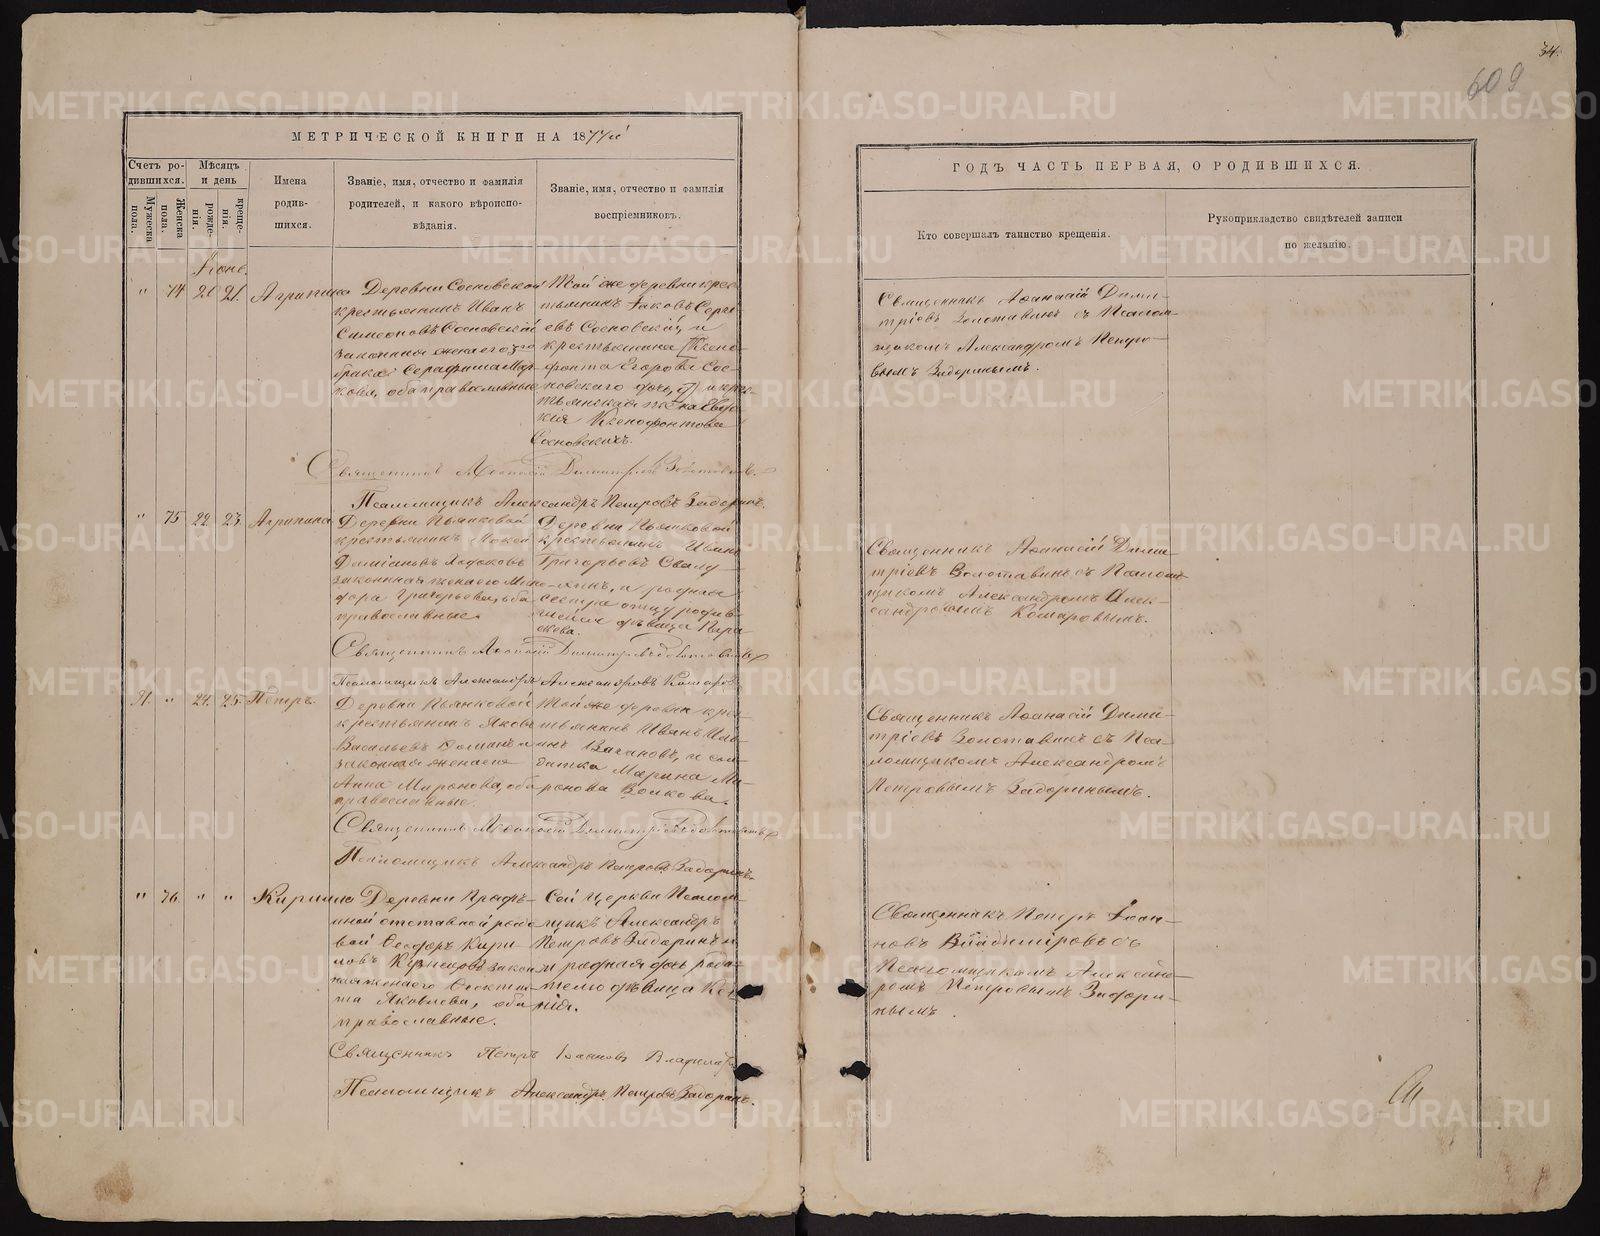 34.
609
МЕТРИЧЕСКОЙ КНИГИ НА 1877й
ГОДЪ ЧАСТЬ ПЕРВАЯ, О РОДИВШИХСЯ.
Счетъ ро-
дившихся.
Мужеска
пола.
Женска
пола.
Мѣсяцъ
и день
рожде-
нія.
креще-
нія.
Имена
родив-
шихся.
Званіе, имя, отчество и фамилія
родителей, и какого вѣроиспо-
вѣданія.
Званіе, имя, отчество и фамилія
воспріемниковъ.
Кто совершалъ таинство крещенія.
Рукоприкладство свидѣтелей записи
по желанію.
" 74 21.
Агрипина
Деревни Сосновской
крестьянинъ Иванъ
Симеоновъ Сосновскій
законная жена его 3го
брака Серафима Мар-
кова, оба православные
Той же деревни крес-
тьянинъ Іаковъ Серге-
евъ Сосновскій, и
крестьянина Ксено-
фонта Егорова Сос-
новскаго дочь,
Ксенофонтова
Сосновскихъ.
Священникъ Аѳанасій Дими-
тріевъ Золотавинъ съ Псалом-
щикомъ Александромъ Петро-
вымъ Задоринымъ.
Священникъ Аѳанасій Димитріевъ Золотавинъ
Псаломщикъ Александръ Петровъ Задоринъ.
" 75 22 23.
Агрипина
Деревни Пьянковой
крестьянинъ Мокей
Даміановъ Ходаковъ
законная жена его Мино-
дора Григорьева, оба
православные.
Деревни Пьянковой
крестьянинъ Иванъ
Григорьевъ Свалу-
хинъ, и родная
сестра отцу родив-
шейся дѣвица Пара-
скева.
Священникъ Аѳанасій Дими-
тріевъ Золотавинъ съ Псалом-
щикомъ Александромъ Алек-
сандровымъ Комаровымъ.
Священникъ Аѳанасій Димитріевъ Золотавинъ
Псаломщикъ Александръ Александровъ Комаровъ
71. " 24. 25.
Петръ.
Деревни Пьянковой
крестьянинъ Яковъ
Васильевъ
законная жена его
Анна Миронова, оба
православные.
Той же деревни крес-
тьянинъ Иванъ
Вагановъ, и сол-
датка Марина Ми-
ронова Волкова.
Священникъ Аѳанасій Дими-
тріевъ Золотавинъ съ Пса-
ломщикомъ Александромъ
Петровымъ Задоринымъ.
Священникъ Аѳанасій Димитріевъ Золотавинъ
Псаломщикъ Александръ Петровъ Задоринъ.
" 76. " "
Деревни
отставной рядо-
вой Ѳеодоръ Кири-
ловъ Кузнецовъ закон-
ная жена его
Яковлева, оба
православные.
Сей Церкви Псалом-
щикъ Александръ
Петровъ Задоринъ и
родная дочь роди-
телю дѣвица
Священникъ Петръ Іоан-
новъ Владиміровъ съ
Псаломщикомъ Александ-
ромъ Петровымъ Задори-
нымъ.
Священникъ Петръ Іоанновъ Владиміровъ
Псаломщикъ Александръ Петровъ Задоринъ.
METRIKI.GASO-URAL.RU